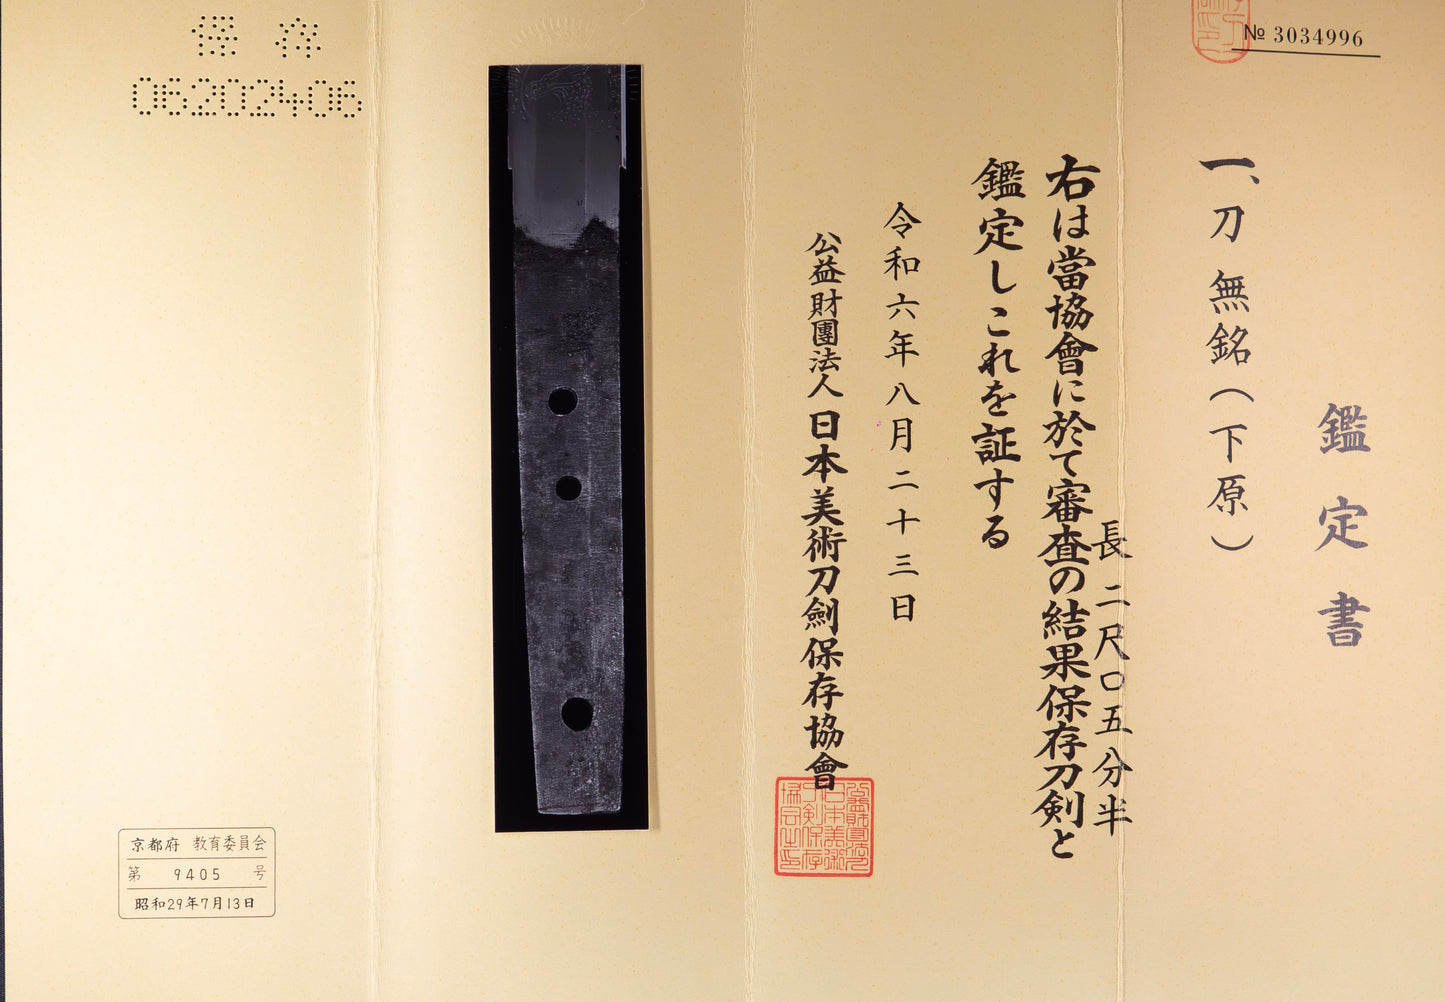 № 3034996
鑑定書
一、刀 無銘(下原)
長二尺〇五分半
右は當協會に於て審査の結果保存刀剣と
鑑定しこれを証する
令和六年八月二十三日
公益財團法人日本美術刀劍保存協會
保存
06202406
京都府 教育委員会
第 9405 号
昭和29年7月13日